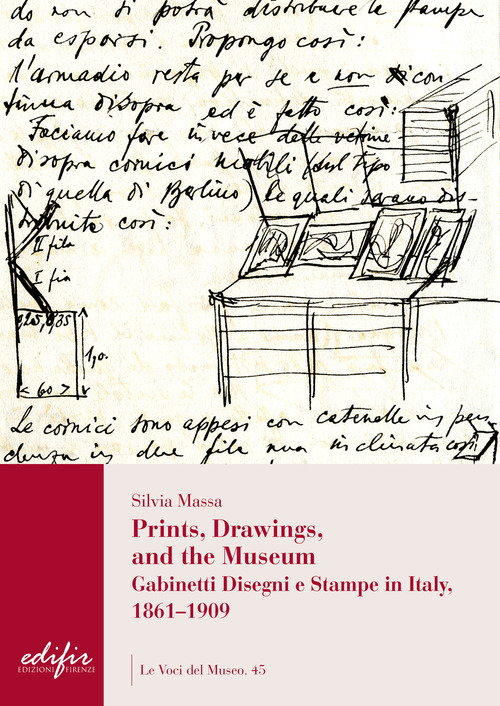 do non si potrà distribuire le stampe
da esporsi. Propongo così:
l'armadio resta per se e non si con
tinua disopra ed è fatto così:
Facciamo fare invece delle vetrine
disopra cornici mobili (sul tipo
di quella di Berlino) le quali saranno dis-
tribuite così:
II fila
I fila
35
190.
< 60 >
Le cornici sono appesi con catenelle in pen
denza in due file una inclinata così
Silvia Massa
Prints, Drawings,
and the Museum
Gabinetti Disegni e Stampe in Italy,
1861–1909
edifir
EDIZIONI FIRENZE
Le Voci del Museo. 45